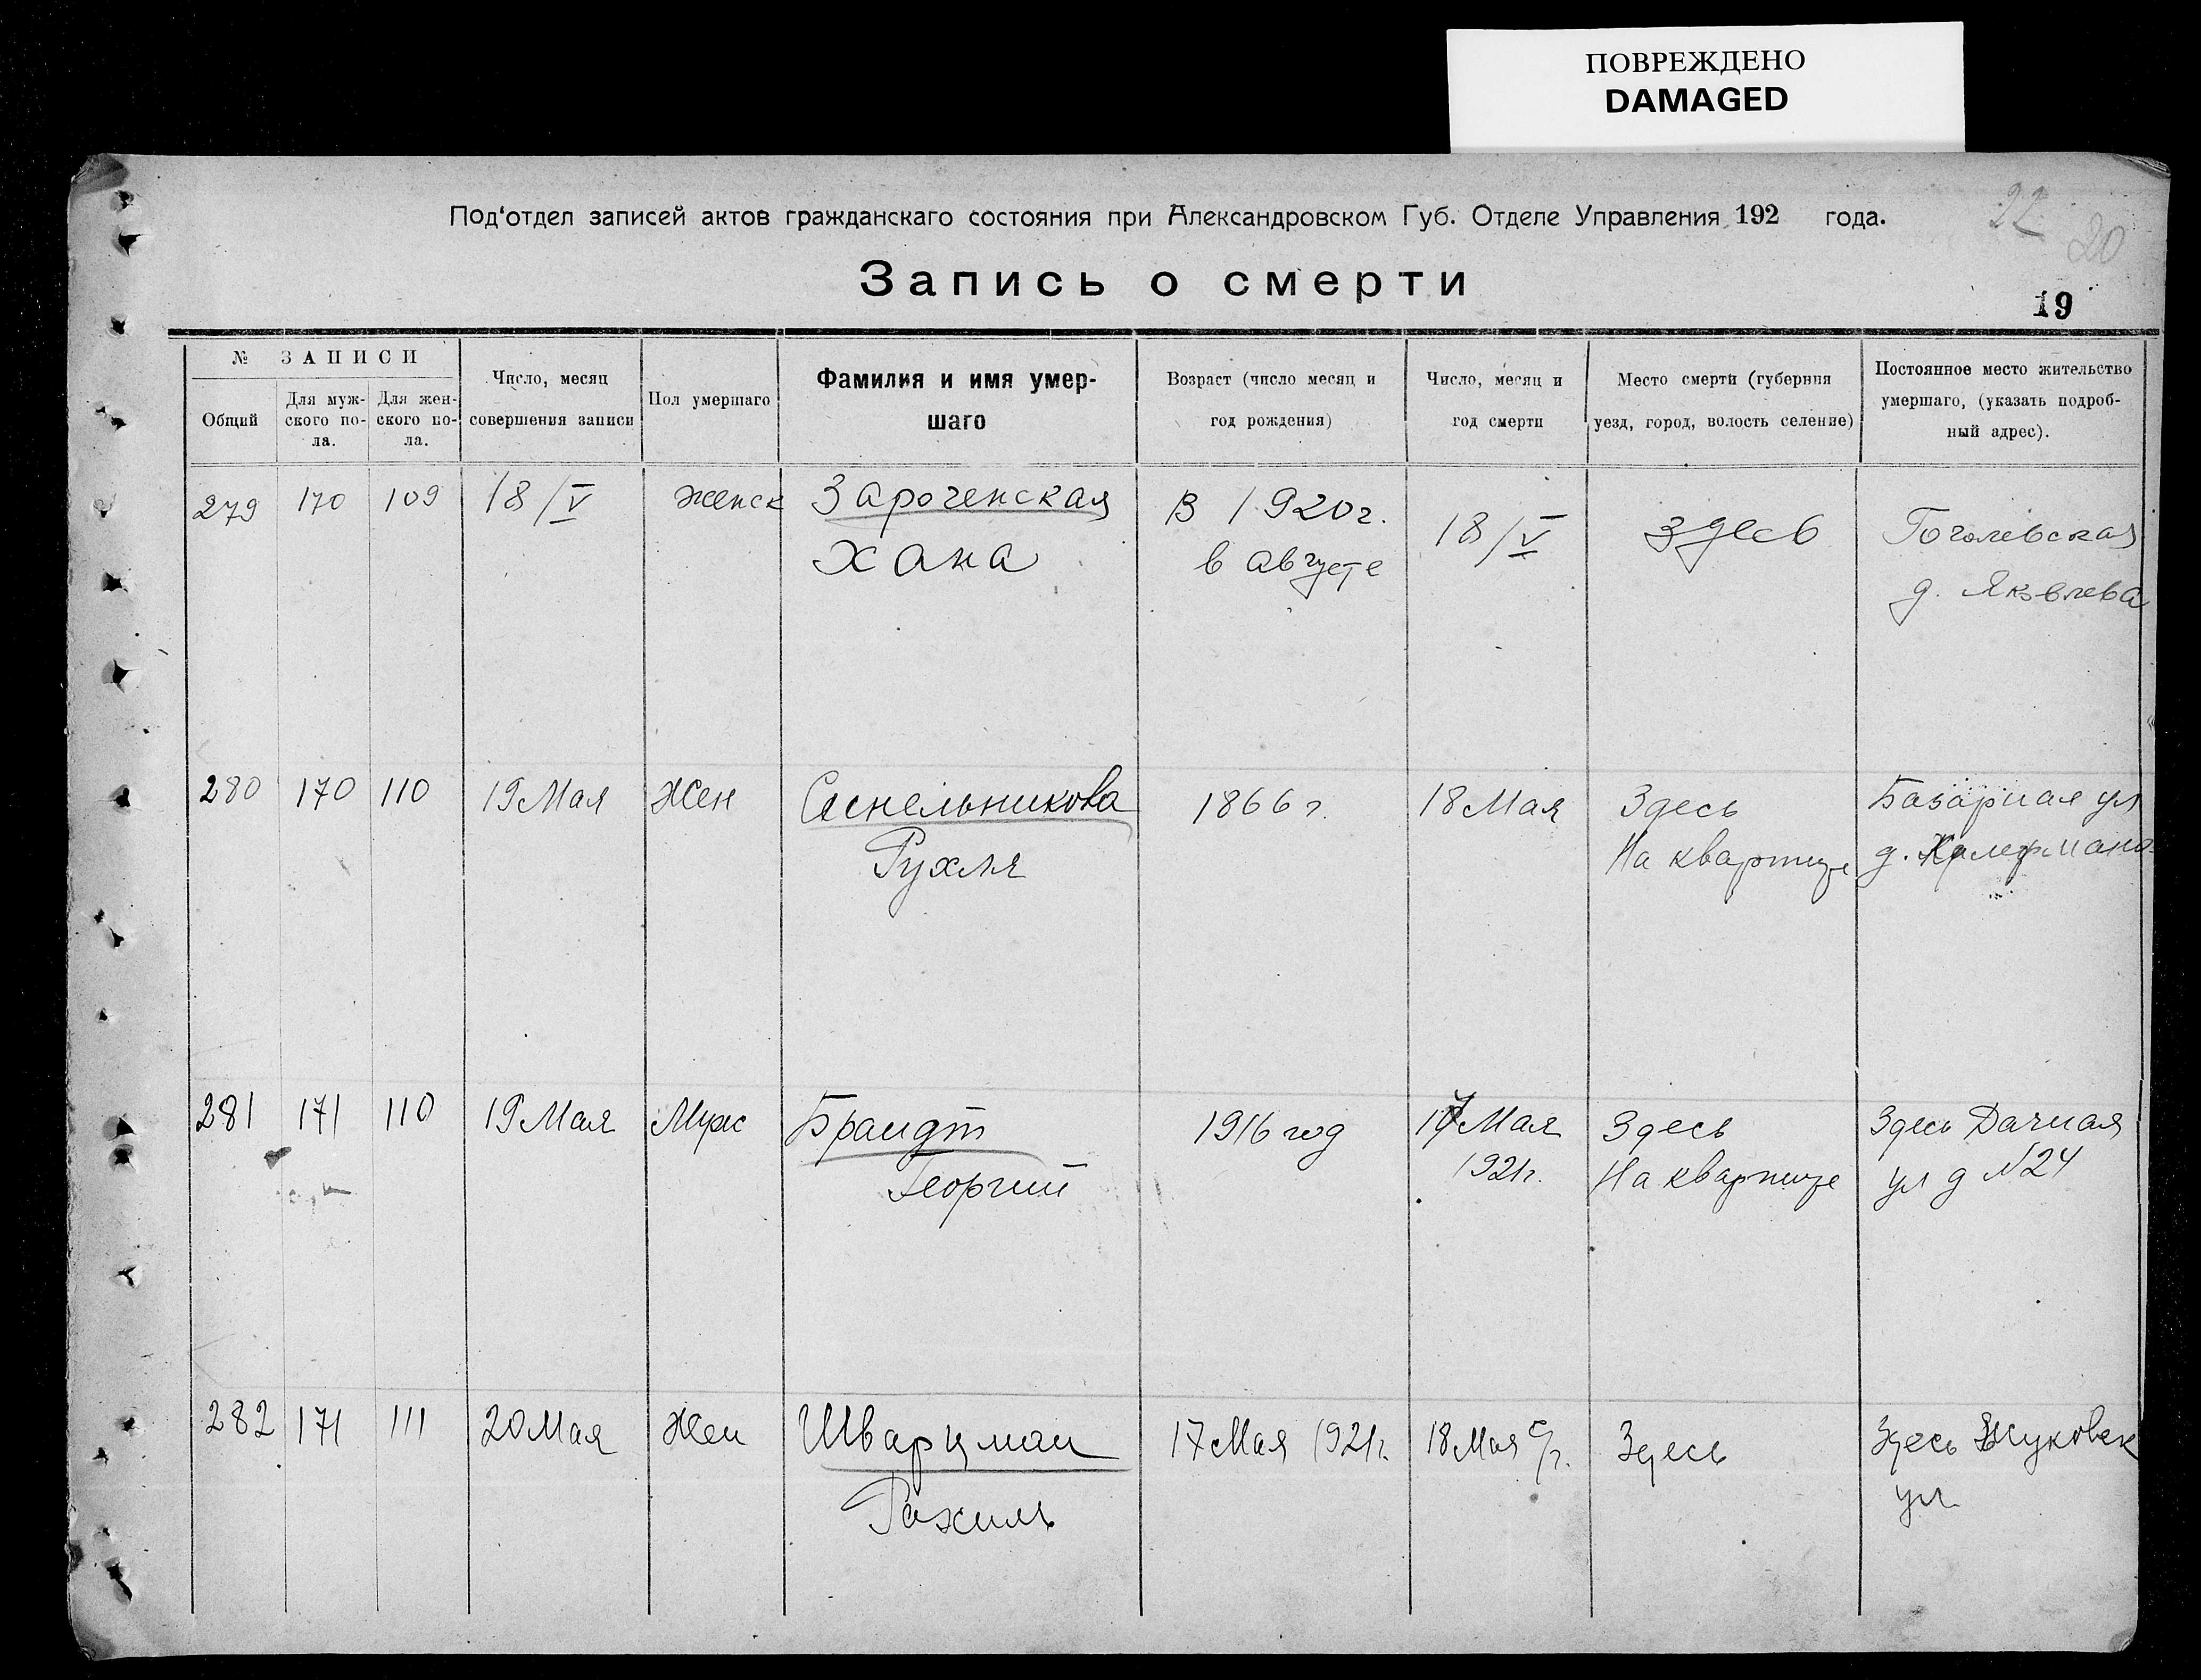 ПОВРЕЖДЕНО
DAMAGED
22
20
Под'отдел записей актов гражданскаго состояния при Александровском Губ. Отделе Управления 192 года.
Запись о смерти
19
№ ЗАПИСИ
Общий
Для муж-
ского по-
ла.
Для жен-
ского по-
ла.
Число, месяц
совершения записи
Пол умершаго
Фамилия и имя умер-
шаго
Возраст (число месяц и
год рождения)
Число, месяц и
год смерти
Место смерти (губерния
уезд, город, волость селение)
Постоянное место жительство
умершаго, (указать подроб-
ный адрес).
279 170 109 18/V женск Зароченская
Хана
В 1920г.
в августе
18/V
здесь
Гоголевская
д. Яковлева
280 170 110 19 Мая Жен Синельникова
Рухля
1866 г.
18 Мая
Здесь
На квартире
Базарная ул
д.
281 171 110 19 Мая Муж Брандт
Георгий
1916 год
17 Мая
1921г.
Здесь
На квартире
Здесь Дачная
ул д №24
282 171 111 20 Мая Жен Шварцман
Рахиль
17 Мая 1921г.
18 Мая с/г.
Здесь
Здесь Жуковск
ул